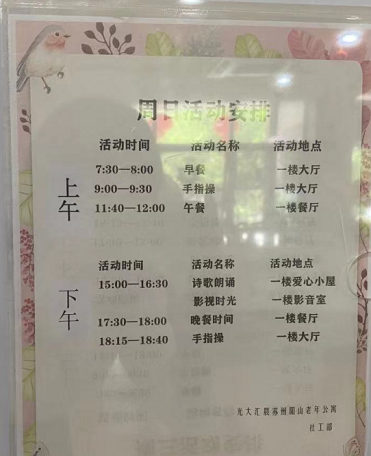 周日活动安排
活动时间 活动名称 活动地点
上午
7:30—8:00 早餐 一楼大厅
9:00—9:30 手指操 一楼大厅
11:40—12:00 午餐 一楼餐厅
活动时间 活动名称 活动地点
下午
15:00—16:30 诗歌朗诵 一楼爱心小屋
影视时光 一楼影音室
17:30—18:00 晚餐时间 一楼餐厅
18:15—18:40 手指操 一楼大厅
光大汇晨苏州阳山老年公寓
社工部